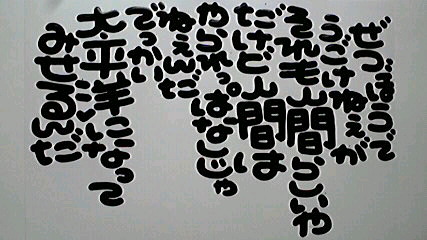 ぜつぼうで
うごけねぇが
それも人間らしいや
だけど人間は
やられっぱなしじゃ
ねぇんだ
でっかい
太平洋になって
みせるんだ